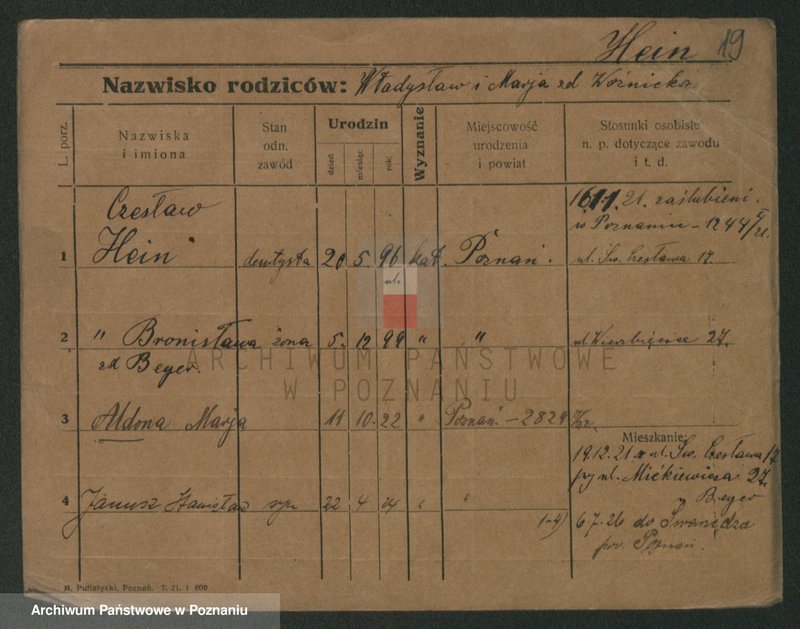 Hein 19
Nazwisko rodziców: Władysław i Marja zd Woźnicka
L. porz.
Nazwiska
i imiona
Stan
odn.
zawód
Urodzin
dzień
miesiąc
rok
Wyznanie
Miejscowość
urodzenia
i powiat
Stosunki osobiste
n. p. dotyczące zawodu
i t. d.
1 Czesław
Hein dentysta 20 5. 96 kat. Poznań.
16.11.21. zaślubieni
w Poznaniu - 1244/21.
ul. Św. Czesława 17
2 " Bronisława żona 5. 12 99 " "
zd Beger.
27.
3 Aldona Marja 11 10. 22 " Poznań. - 2829
4 Janusz Stanisław syn 22 4 24 " "
Mieszkanie:
19.12.21 ul. Św. Czesława 17
przy ul. Mićkiewicza 27.
Beger
1-4) 6 7. 26 do Swarzędza
pow. Poznań.
M. Putiatycki, Poznań. 7. 21. 1 600
ARCHIWUM PAŃSTWOWE
W POZNANIU
Archiwum Państwowe w Poznaniu